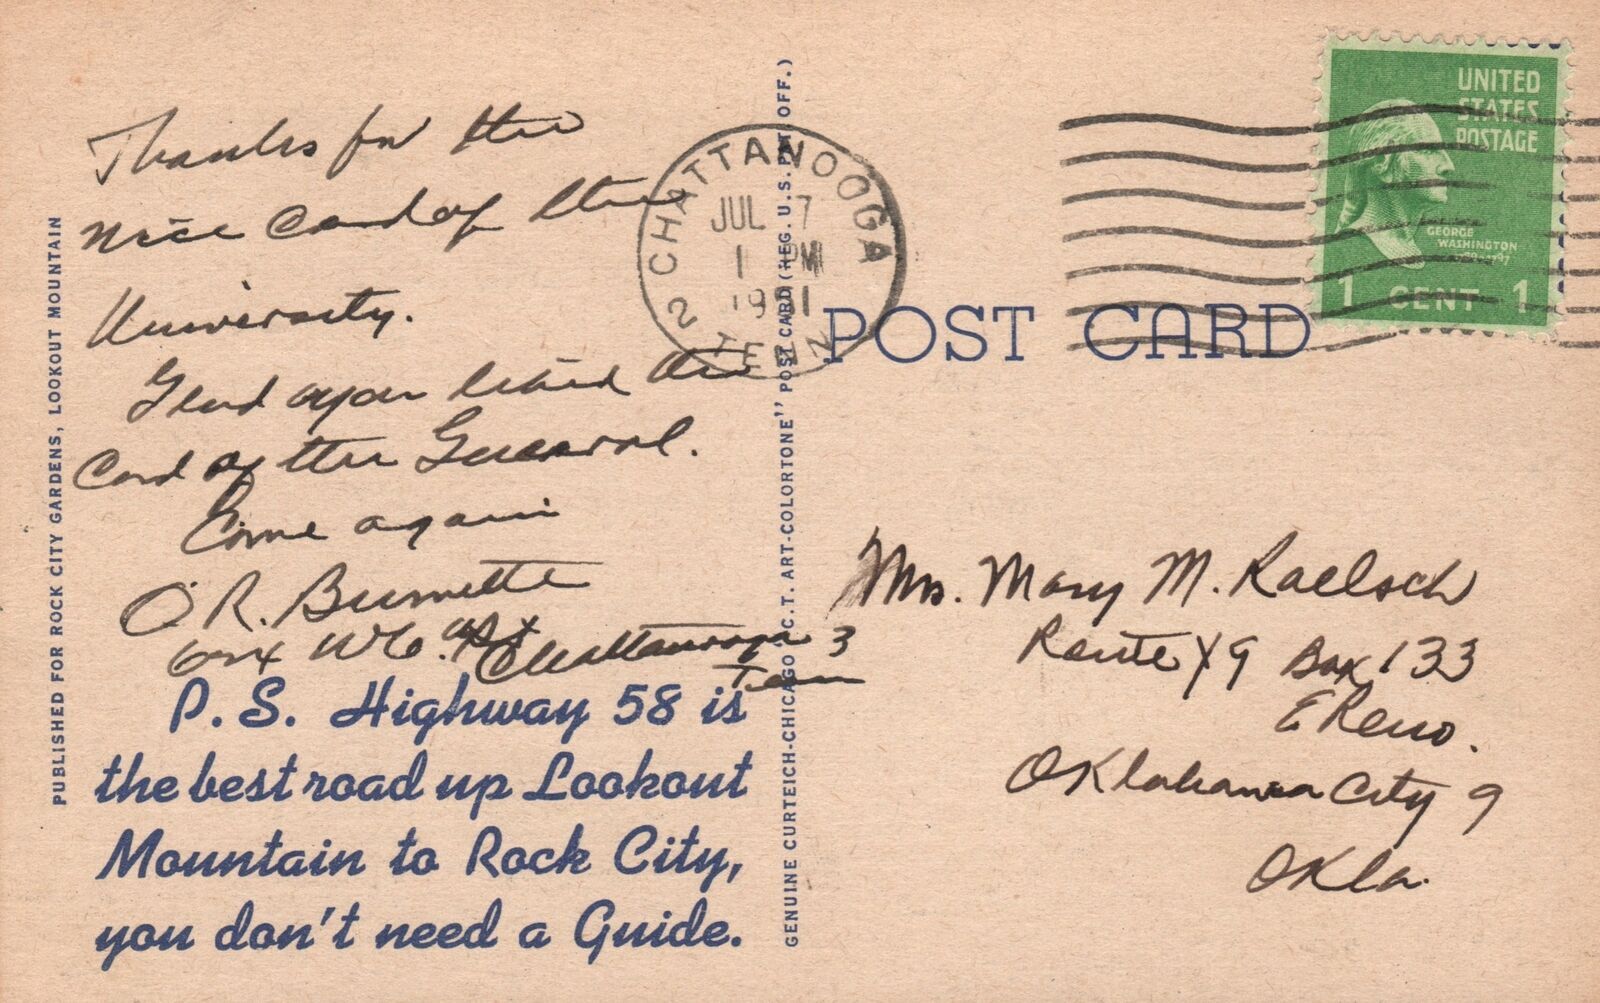 PUBLISHED FOR ROCK CITY GARDENS, LOOKOUT MOUNTAIN
Thanks for the
nice Card of the
University.
Glad you liked the
Card of the General.
Come again
O R. Burnette
Chattanooga 3
Tenn
P. S. Highway 58 is
the best road up Lookout
Mountain to Rock City,
you don't need a Guide.
GENUINE CURTEICH-CHICAGO "C. T. ART-COLORTONE" POST CARD (REG. U.S. PAT. OFF.)
CHATTANOOGA
JUL 7
1 PM
1951
2 TENN
POST CARD
UNITED
STATES
POSTAGE
GEORGE
WASHINGTON
1 CENT 1
Mrs. Mary M. Raelsch
Route 9 Box 133
E Reno.
Oklahoma City 9
Okla.